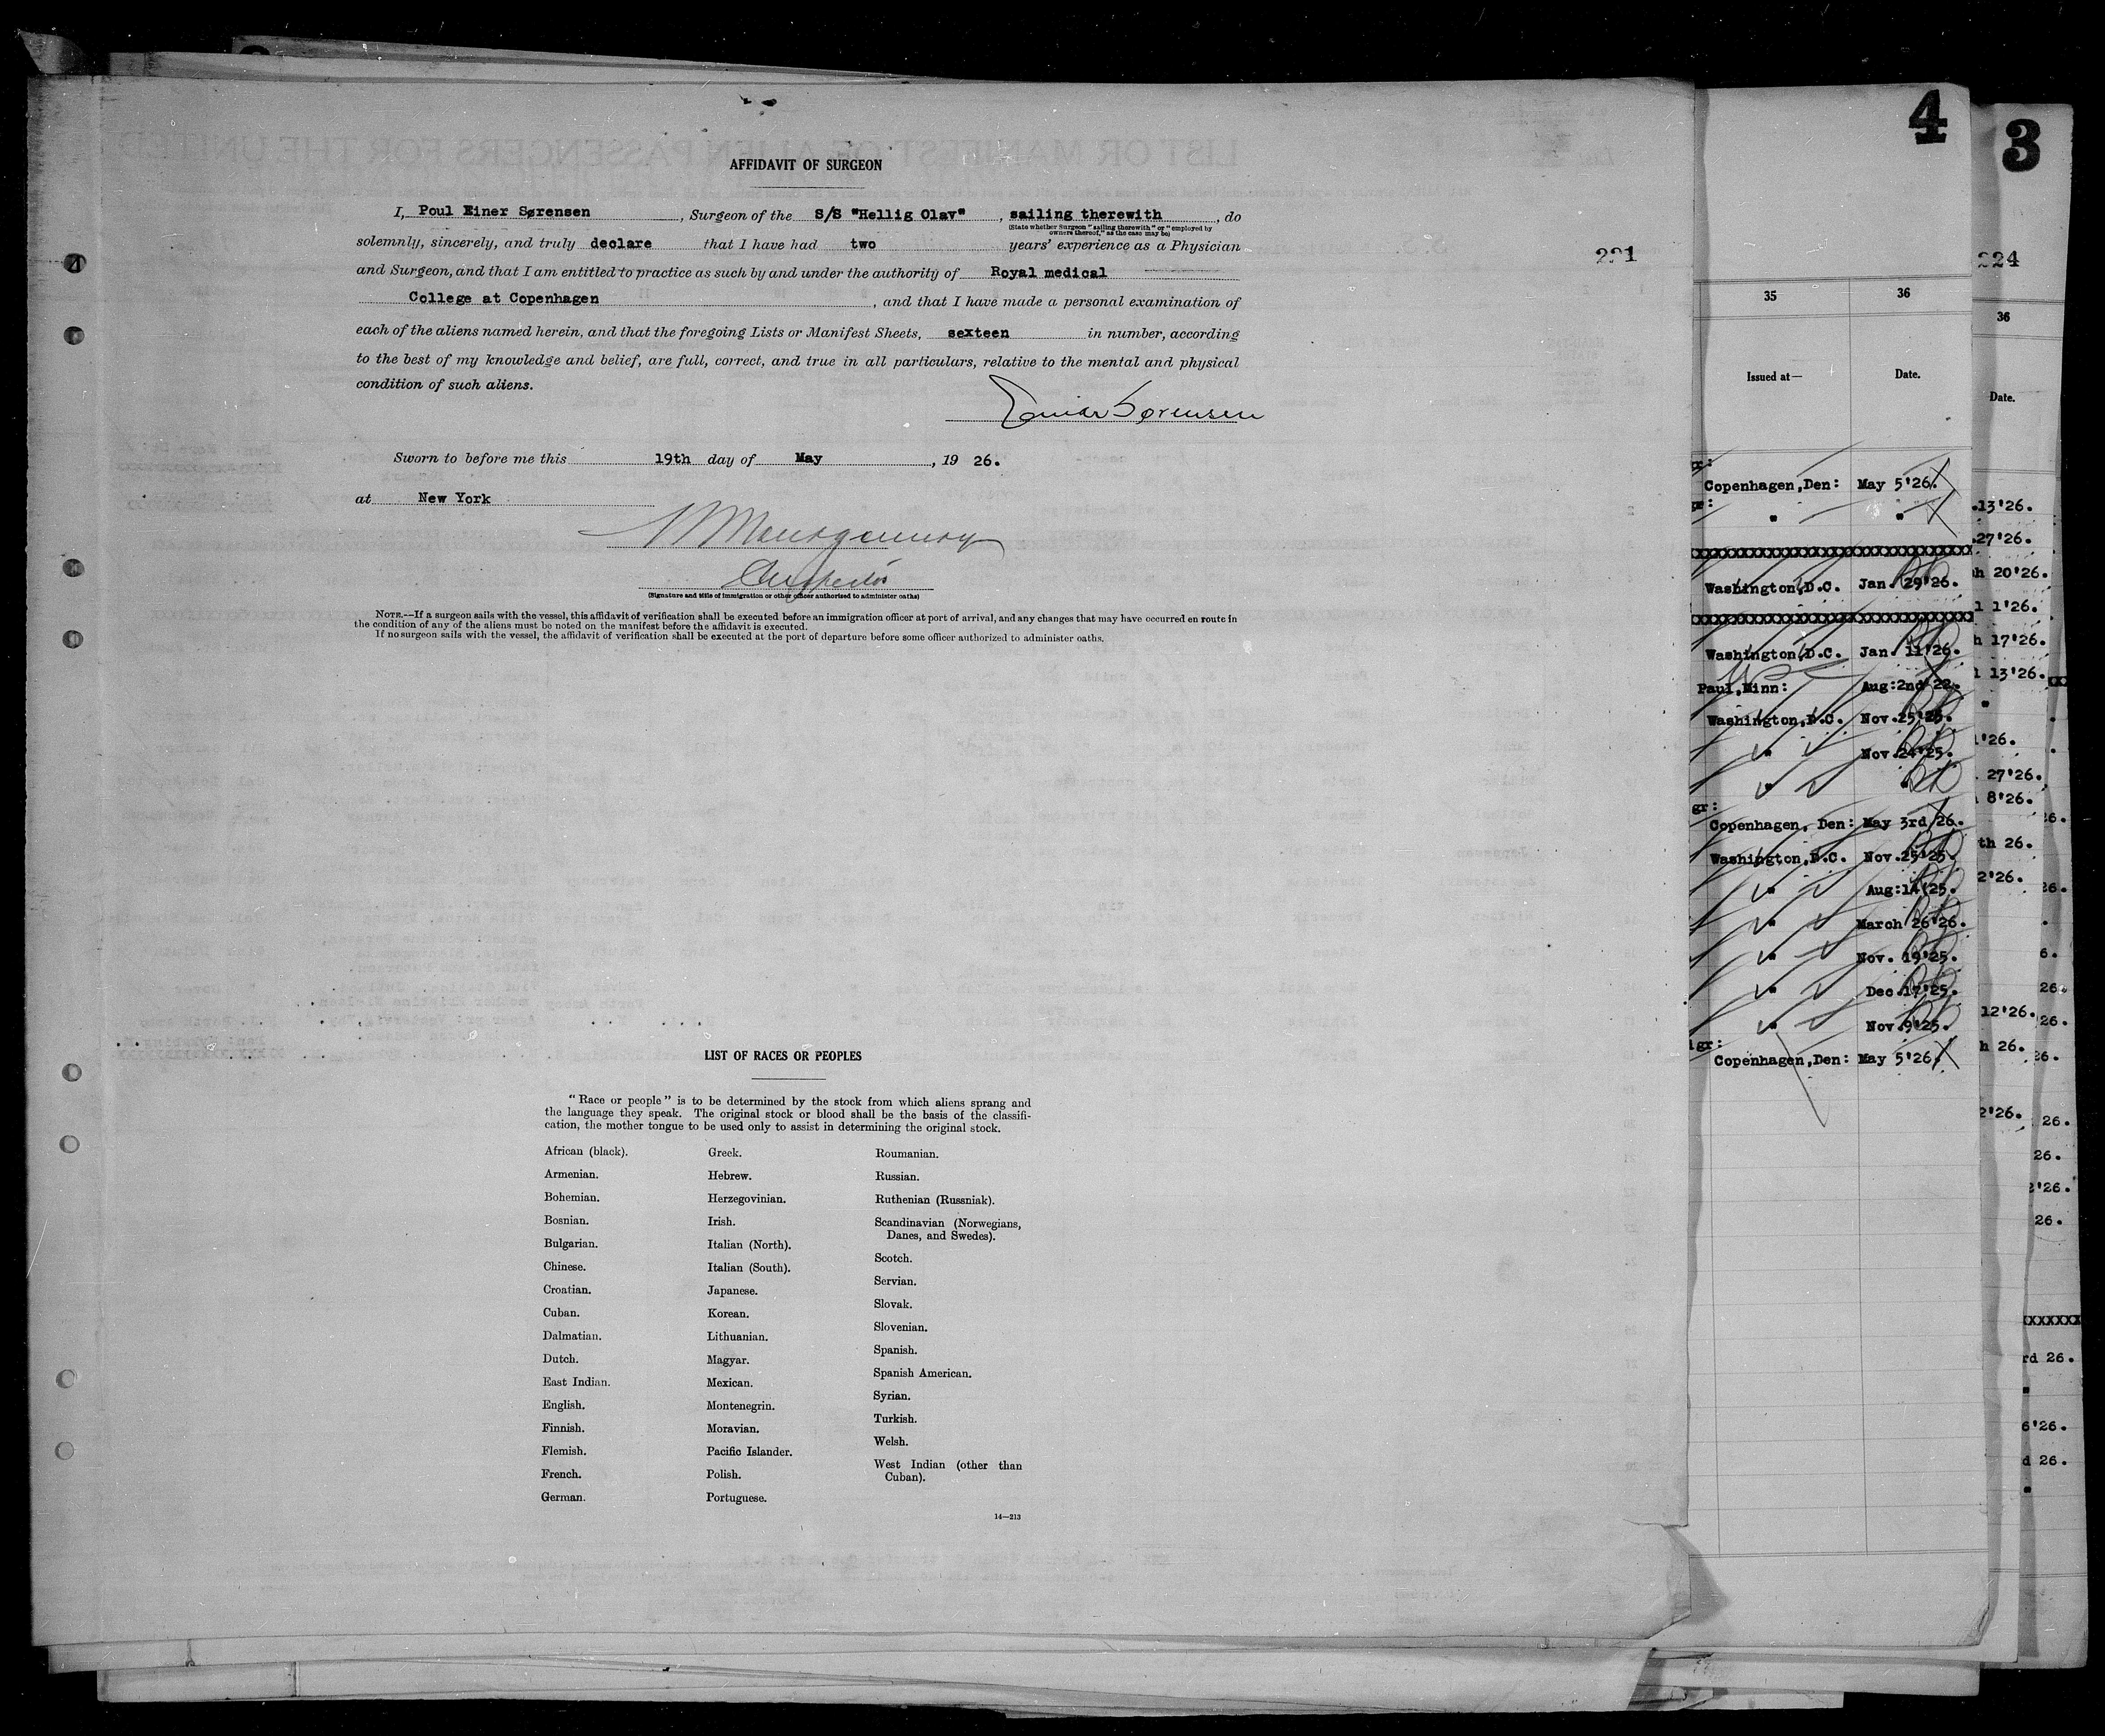 AFFIDAVIT OF SURGEON
I, Poul Einer Sørensen, Surgeon of the S/S "Hellig Olav", sailing therewith, do
(State whether Surgeon "sailing therewith" or "employed by
owners thereof," as the case may be)
solemnly, sincerely, and truly declare that I have had two years' experience as a Physician
and Surgeon, and that I am entitled to practice as such by and under the authority of Royal medical
College at Copenhagen, and that I have made a personal examination of
each of the aliens named herein, and that the foregoing Lists or Manifest Sheets, sexteen in number, according
to the best of my knowledge and belief, are full, correct, and true in all particulars, relative to the mental and physical
condition of such aliens.
Einar Sørensen
Sworn to before me this 19th day of May, 19 26.
at New York
Montgomery
Inspector
(Signature and title of immigration or other officer authorized to administer oaths)
NOTE.—If a surgeon sails with the vessel, this affidavit of verification shall be executed before an immigration officer at port of arrival, and any changes that may have occurred en route in
the condition of any of the aliens must be noted on the manifest before the affidavit is executed.
If no surgeon sails with the vessel, the affidavit of verification shall be executed at the port of departure before some officer authorized to administer oaths.
LIST OF RACES OR PEOPLES
"Race or people" is to be determined by the stock from which aliens sprang and
the language they speak. The original stock or blood shall be the basis of the classifi-
cation, the mother tongue to be used only to assist in determining the original stock.
African (black).
Armenian.
Bohemian.
Bosnian.
Bulgarian.
Chinese.
Croatian.
Cuban.
Dalmatian.
Dutch.
East Indian.
English.
Finnish.
Flemish.
French.
German.
Greek.
Hebrew.
Herzegovinian.
Irish.
Italian (North).
Italian (South).
Japanese.
Korean.
Lithuanian.
Magyar.
Mexican.
Montenegrin.
Moravian.
Pacific Islander.
Polish.
Portuguese.
Roumanian.
Russian.
Ruthenian (Russniak).
Scandinavian (Norwegians,
Danes, and Swedes).
Scotch.
Servian.
Slovak.
Slovenian.
Spanish.
Spanish American.
Syrian.
Turkish.
Welsh.
West Indian (other than
Cuban).
14—213
221
4
35 36
Issued at— Date.
Copenhagen,Den: May 5'26.
" "
xxxxxxxxxxxxxxxxxxxxxxxxxxxx
Washington,D.C. Jan. 29'26.
xxxxxxxxxxxxxxxxxxxxxxxxxxxx
Washington,D.C. Jan. 11'26.
Paul,Minn: Aug:2nd 22.
Washington,D.C. Nov.25'25.
" Nov.24'25.
" "
gr:
Copenhagen, Den: May 3rd 26.
Washington,D.C. Nov.25'25.
" Aug:14'25.
" March 26'26.
" Nov. 19'25.
" Dec.17'25.
" Nov.9'25.
gr:
Copenhagen,Den: May 5'26.
3
224
36
Date.
13'26.
27'26.
h 20'26.
1'26.
h 17'26.
13'26.
"
1'26.
27'26.
8'26.
th 26.
2'26.
12'26.
h 26.
2'26.
26.
26.
6.
26.
26.
26.
26.
26.
2'26.
26.
xxxxxxx
rd 26.
"
6'26.
d 26.
"